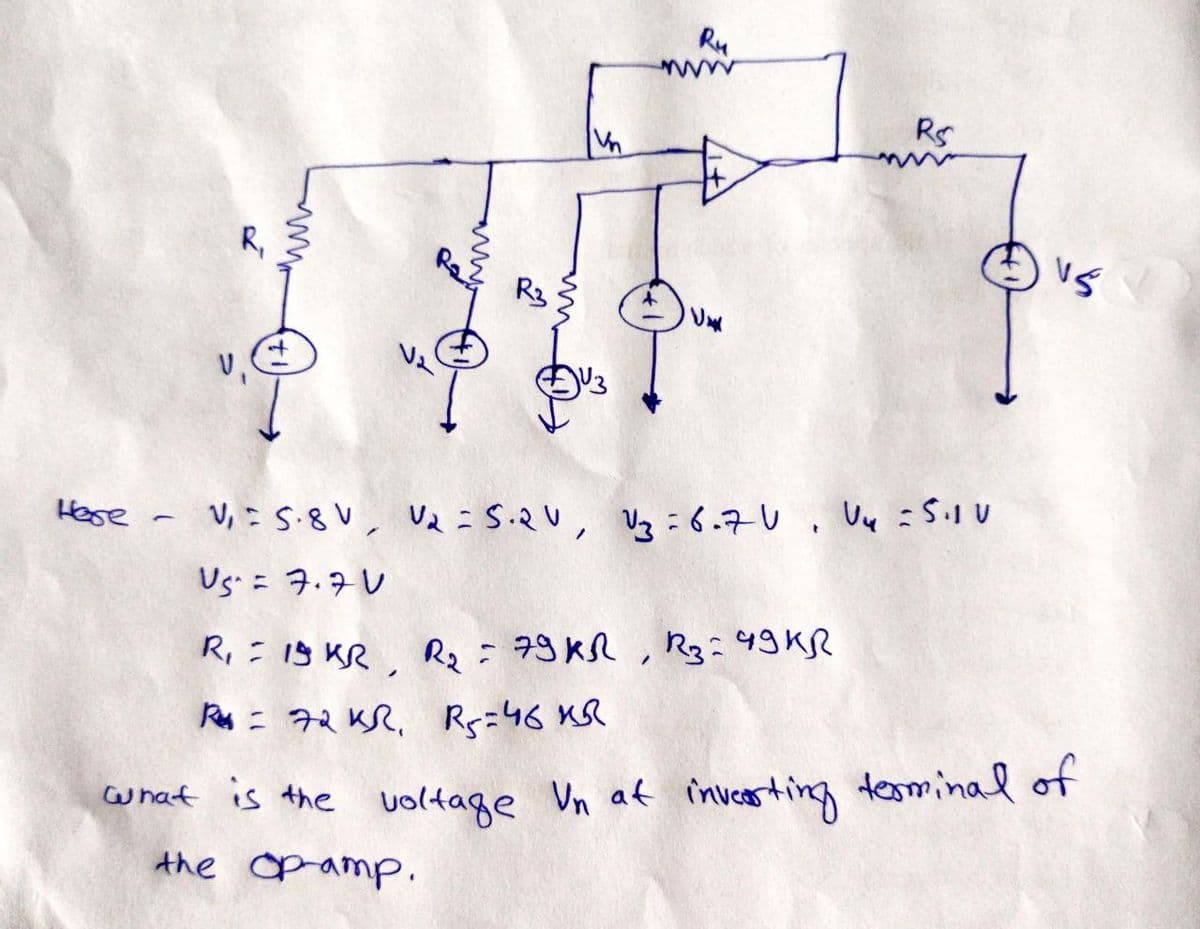 R4
Vn
R5
R1
R2
R3
V5
V1
V2
V3
Here - V1 = 5.8 V, V2 = 5.2 V, V3 = 6.7 V, V4 = 5.1 V
V5 = 7.7 V
R1 = 19 KΩ, R2 = 79 KΩ, R3 = 49 KΩ
R4 = 72 KΩ, R5 = 46 KΩ
what is the voltage Vn at inverting terminal of
the op-amp.